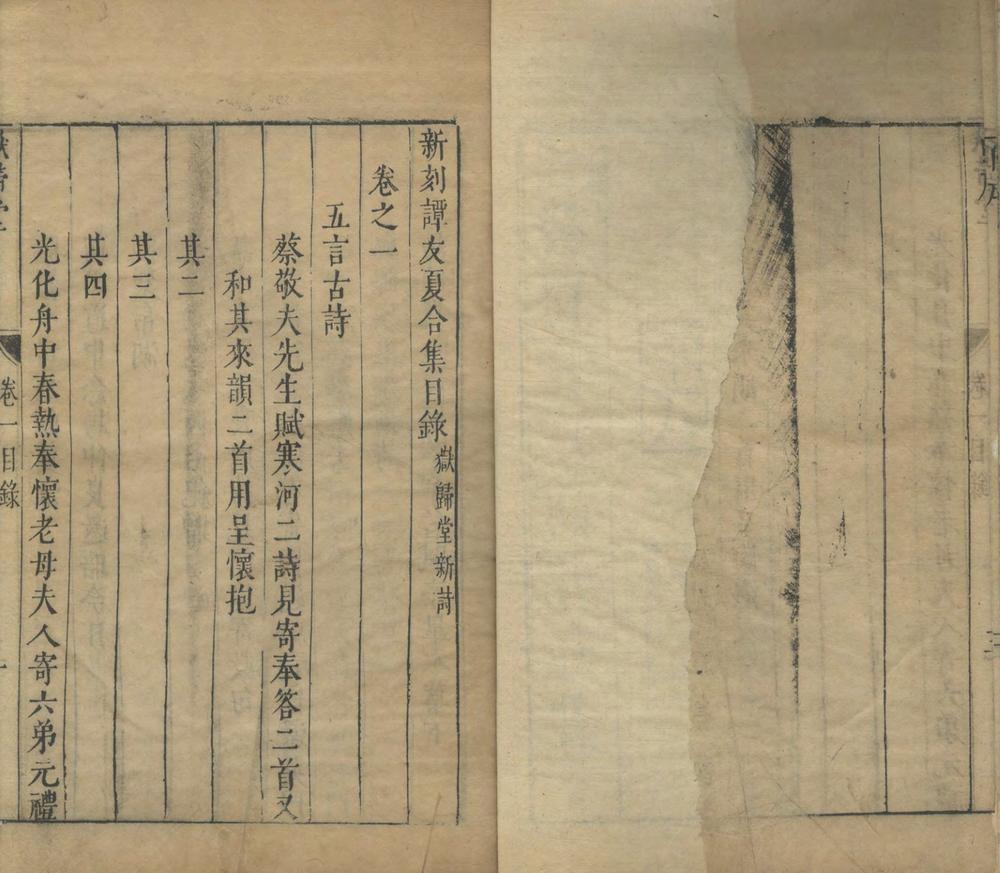 新刻譚友夏合集目錄 嶽歸堂新詩
卷之一
五言古詩
蔡敬夫先生賦寒河二詩見寄奉答二首又
和其來韻二首用呈懷抱
其二
其三
其四
光化舟中春熱奉懷老母夫人寄六弟元禮
卷一目錄